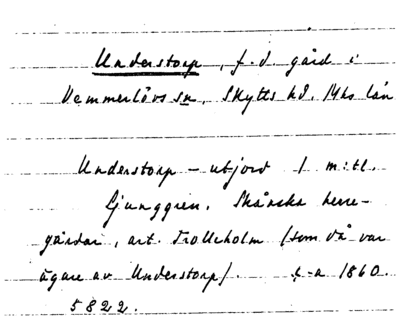 Understorp, f.d. gård i
Vemmerlövs sn, Skytts hd. Mhs län
Understorp - utjord 1 m:tl.
Ljunggren. Skånska herre-
gårdar, art. Trolleholm (som då var
ägare av Understorp). c-a 1860.
5822.